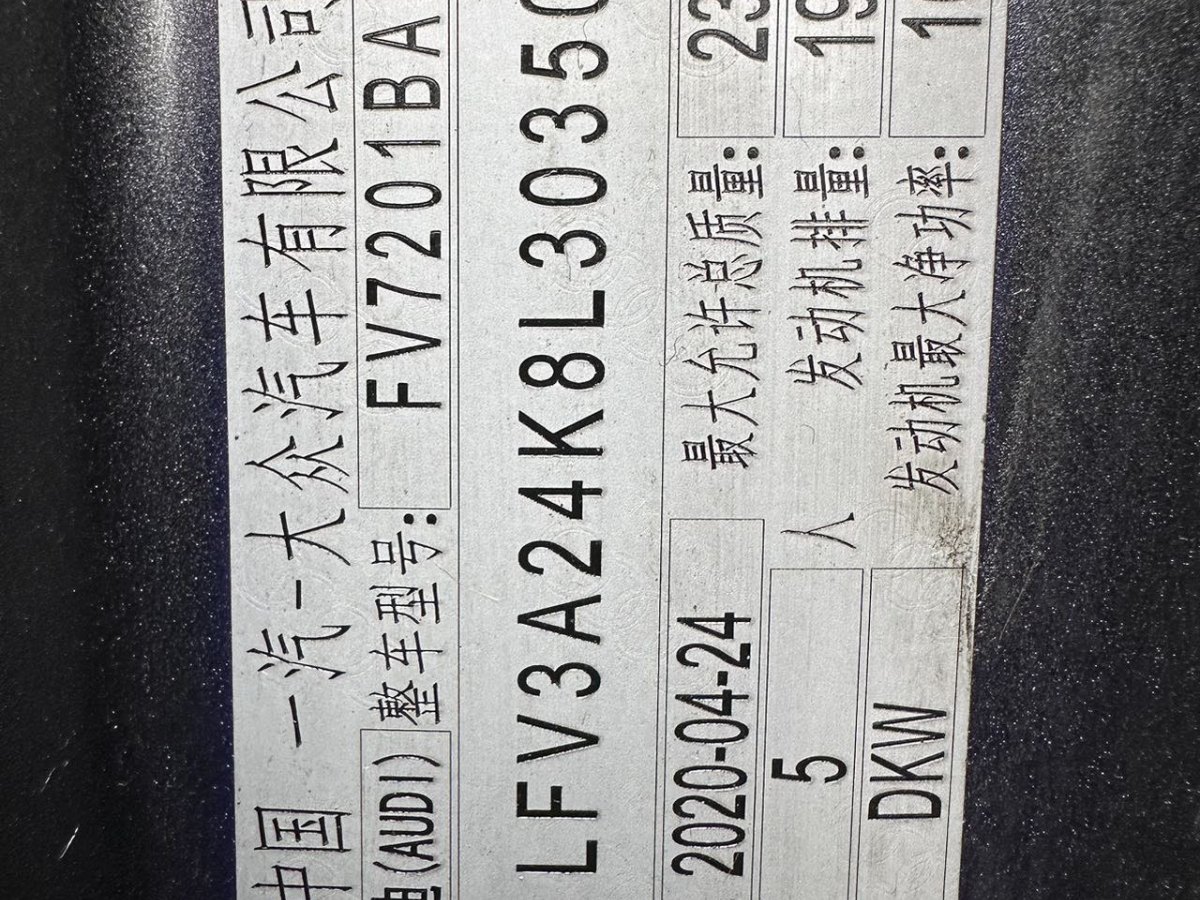 中国 一汽-大众汽车有限公司
(AUDI) 整车型号: FV7201BA
LFV3A24K8L3035
2020-04-24 最大允许总质量: 23
5 人 发动机排量: 19
DKW 发动机最大净功率: 1